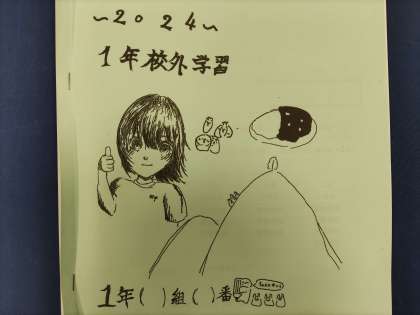 ~2024~
1年校外学習
1年( )組( )番